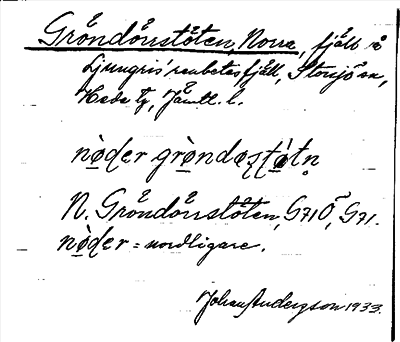 Gröndörrstöten, Norra, fjäll på
Ljungris' renbetesfjäll, Storsjö sn,
Hede tg, Jämtl. l.
nø̀dεr grø̀ndøʂʈø̀tn̥
N. Gröndörrstöten, G71Ö, G71.
nø̀dεr = nordligare.
Johan Andersson 1933.